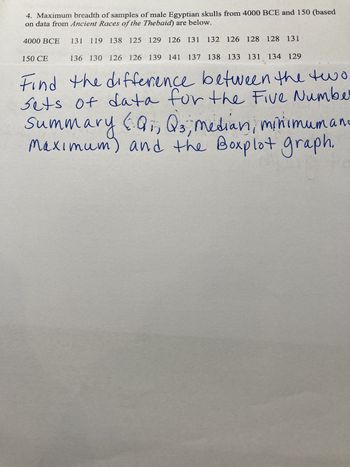 4. Maximum breadth of samples of male Egyptian skulls from 4000 BCE and 150 (based
on data from Ancient Races of the Thebaid) are below.
4000 BCE 131 119 138 125 129 126 131 132 126 128 128 131
150 CE 136 130 126 126 139 141 137 138 133 131 134 129
Find the difference between the two
sets of data for the Five Number
Summary (Q1, Q3, median, minimum and
Maximum) and the Boxplot graph.